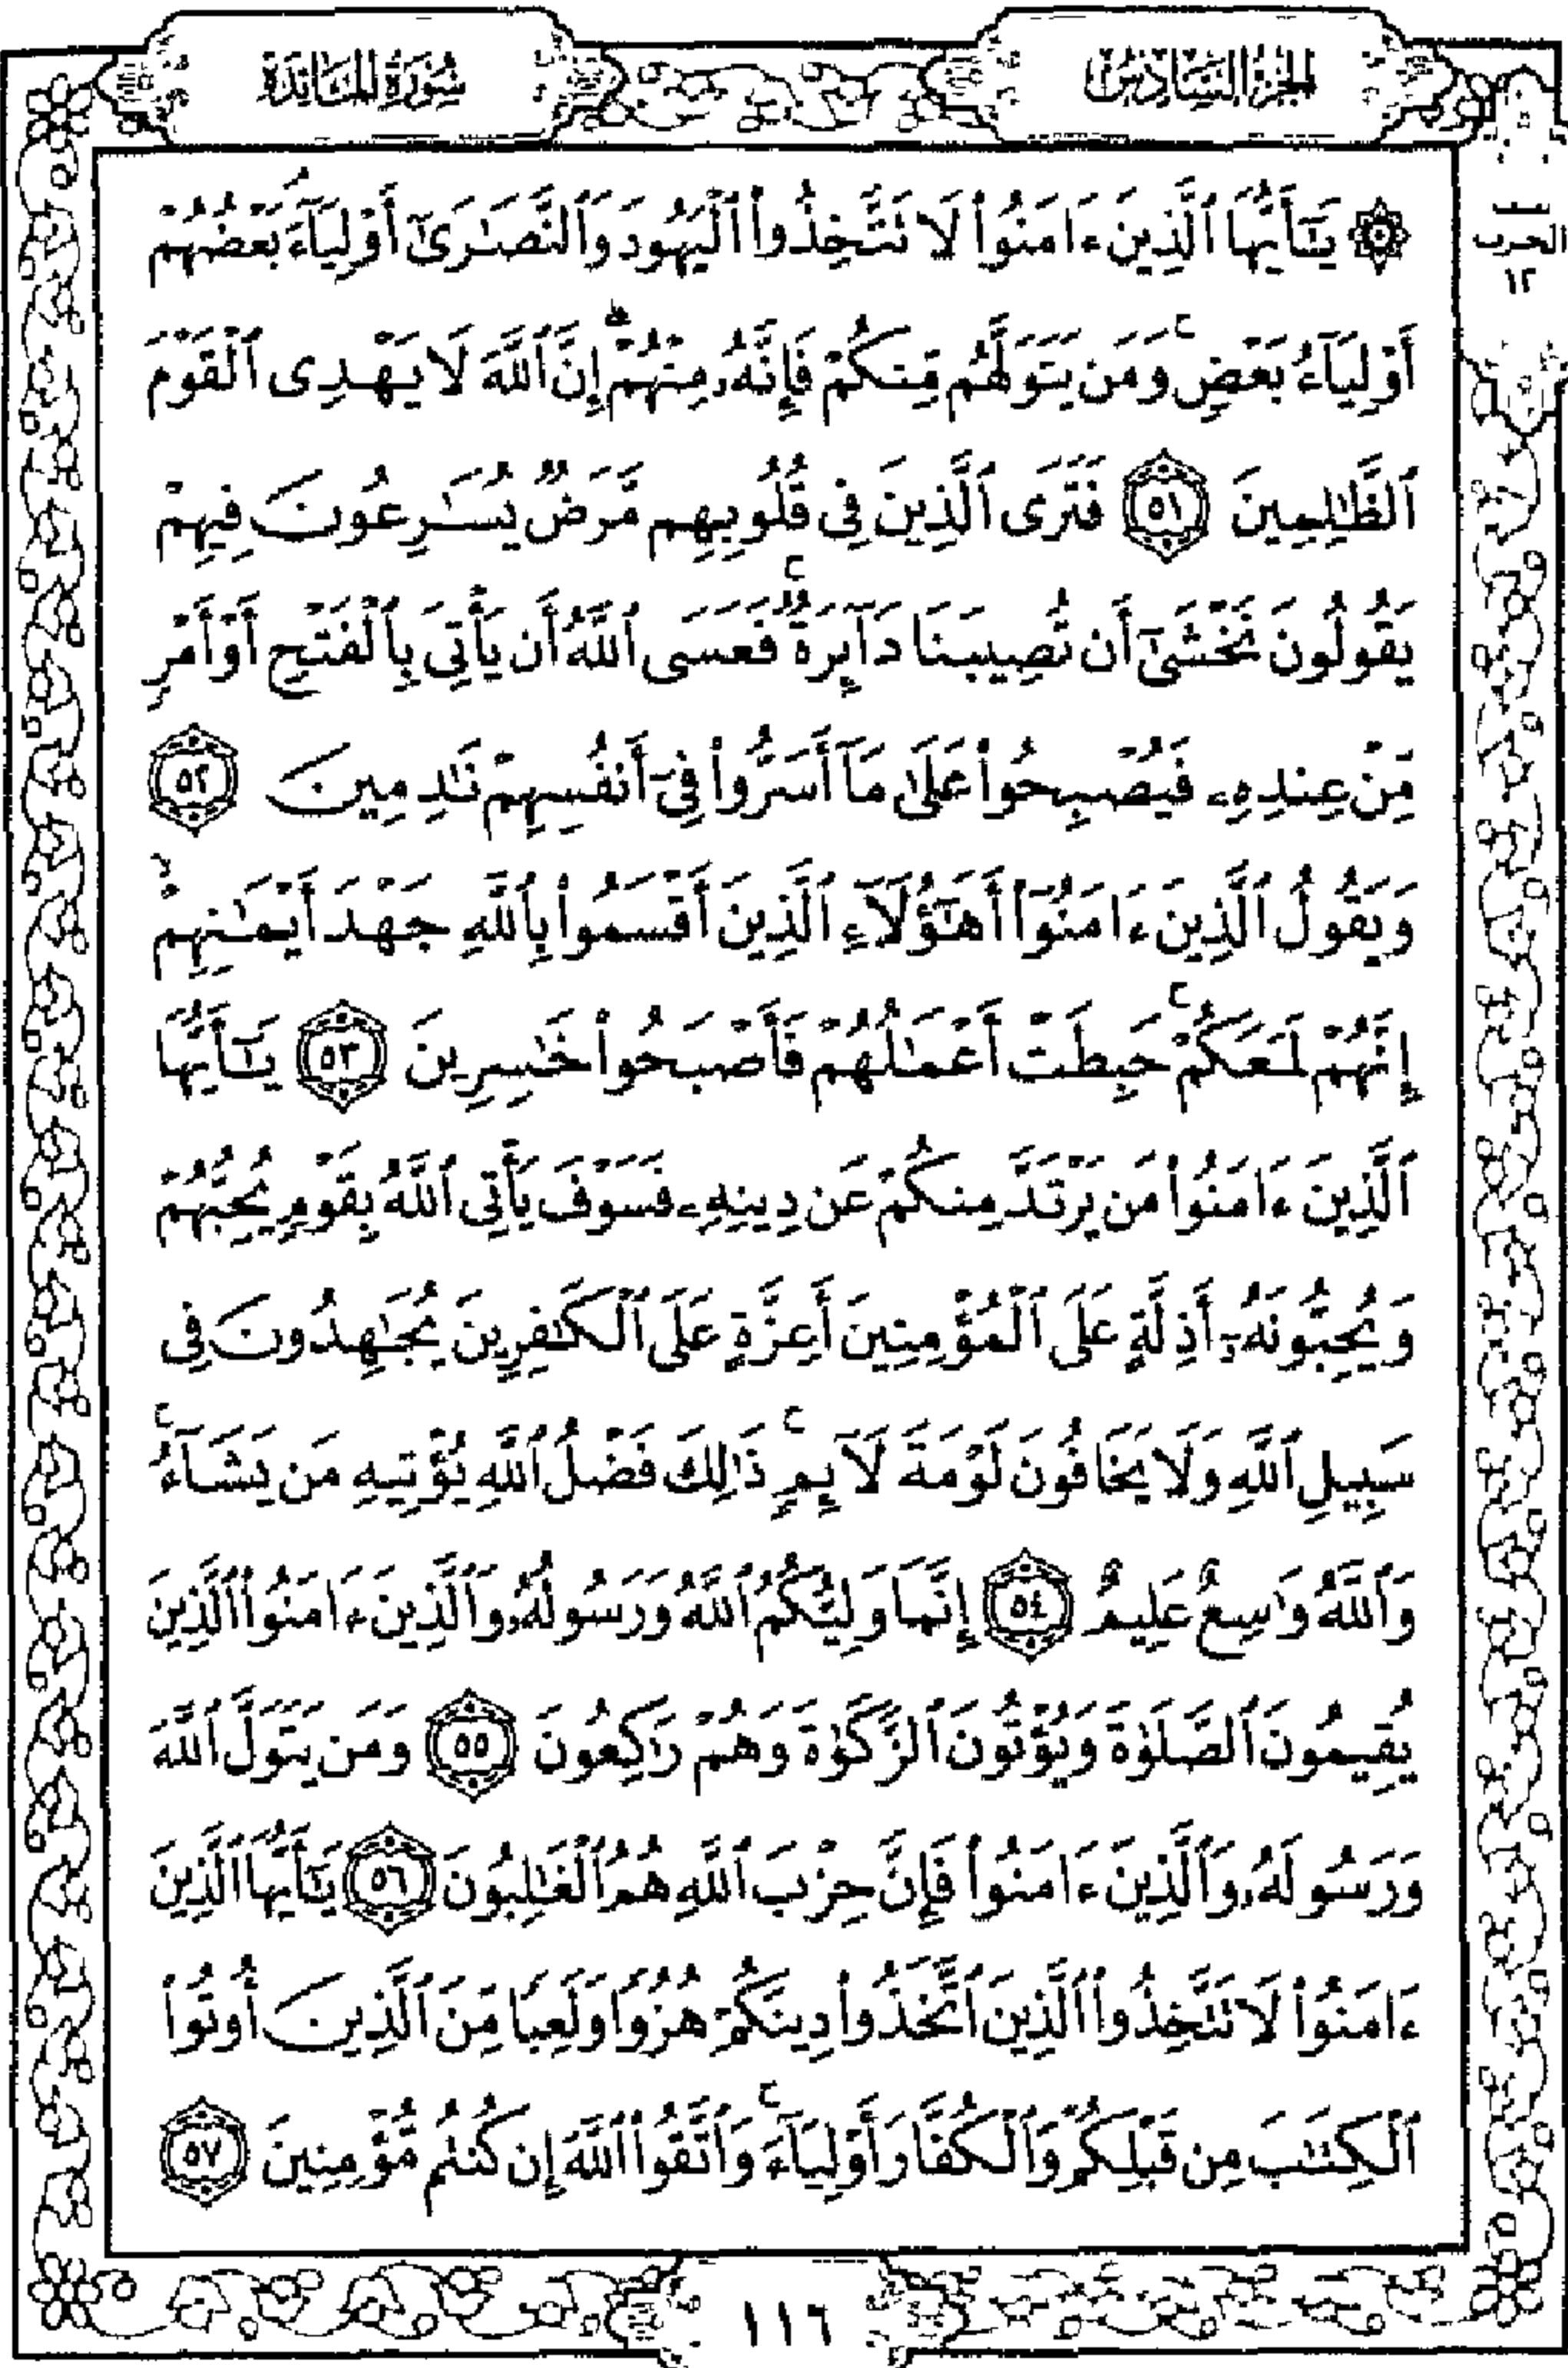 الجزء السادس
سورة المائدة
الحزب
١٢
۞ يَٰٓأَيُّهَا ٱلَّذِينَ ءَامَنُوا۟ لَا تَتَّخِذُوا۟ ٱلْيَهُودَ وَٱلنَّصَٰرَىٰٓ أَوْلِيَآءَ ۘ بَعْضُهُمْ
أَوْلِيَآءُ بَعْضٍ ۚ وَمَن يَتَوَلَّهُم مِّنكُمْ فَإِنَّهُۥ مِنْهُمْ ۗ إِنَّ ٱللَّهَ لَا يَهْدِى ٱلْقَوْمَ
ٱلظَّٰلِمِينَ ٥١ فَتَرَى ٱلَّذِينَ فِى قُلُوبِهِم مَّرَضٌ يُسَٰرِعُونَ فِيهِمْ
يَقُولُونَ نَخْشَىٰٓ أَن تُصِيبَنَا دَآئِرَةٌ ۚ فَعَسَى ٱللَّهُ أَن يَأْتِىَ بِٱلْفَتْحِ أَوْ أَمْرٍ
مِّنْ عِندِهِۦ فَيُصْبِحُوا۟ عَلَىٰ مَآ أَسَرُّوا۟ فِىٓ أَنفُسِهِمْ نَٰدِمِينَ ٥٢
وَيَقُولُ ٱلَّذِينَ ءَامَنُوٓا۟ أَهَٰٓؤُلَآءِ ٱلَّذِينَ أَقْسَمُوا۟ بِٱللَّهِ جَهْدَ أَيْمَٰنِهِمْ ۙ
إِنَّهُمْ لَمَعَكُمْ ۚ حَبِطَتْ أَعْمَٰلُهُمْ فَأَصْبَحُوا۟ خَٰسِرِينَ ٥٣ يَٰٓأَيُّهَا
ٱلَّذِينَ ءَامَنُوا۟ مَن يَرْتَدَّ مِنكُمْ عَن دِينِهِۦ فَسَوْفَ يَأْتِى ٱللَّهُ بِقَوْمٍ يُحِبُّهُمْ
وَيُحِبُّونَهُۥٓ أَذِلَّةٍ عَلَى ٱلْمُؤْمِنِينَ أَعِزَّةٍ عَلَى ٱلْكَٰفِرِينَ يُجَٰهِدُونَ فِى
سَبِيلِ ٱللَّهِ وَلَا يَخَافُونَ لَوْمَةَ لَآئِمٍ ۚ ذَٰلِكَ فَضْلُ ٱللَّهِ يُؤْتِيهِ مَن يَشَآءُ ۚ
وَٱللَّهُ وَٰسِعٌ عَلِيمٌ ٥٤ إِنَّمَا وَلِيُّكُمُ ٱللَّهُ وَرَسُولُهُۥ وَٱلَّذِينَ ءَامَنُوا۟ ٱلَّذِينَ
يُقِيمُونَ ٱلصَّلَوٰةَ وَيُؤْتُونَ ٱلزَّكَوٰةَ وَهُمْ رَٰكِعُونَ ٥٥ وَمَن يَتَوَلَّ ٱللَّهَ
وَرَسُولَهُۥ وَٱلَّذِينَ ءَامَنُوا۟ فَإِنَّ حِزْبَ ٱللَّهِ هُمُ ٱلْغَٰلِبُونَ ٥٦ يَٰٓأَيُّهَا ٱلَّذِينَ
ءَامَنُوا۟ لَا تَتَّخِذُوا۟ ٱلَّذِينَ ٱتَّخَذُوا۟ دِينَكُمْ هُزُوًا وَلَعِبًا مِّنَ ٱلَّذِينَ أُوتُوا۟
ٱلْكِتَٰبَ مِن قَبْلِكُمْ وَٱلْكُفَّارَ أَوْلِيَآءَ ۚ وَٱتَّقُوا۟ ٱللَّهَ إِن كُنتُم مُّؤْمِنِينَ ٥٧
١١٦